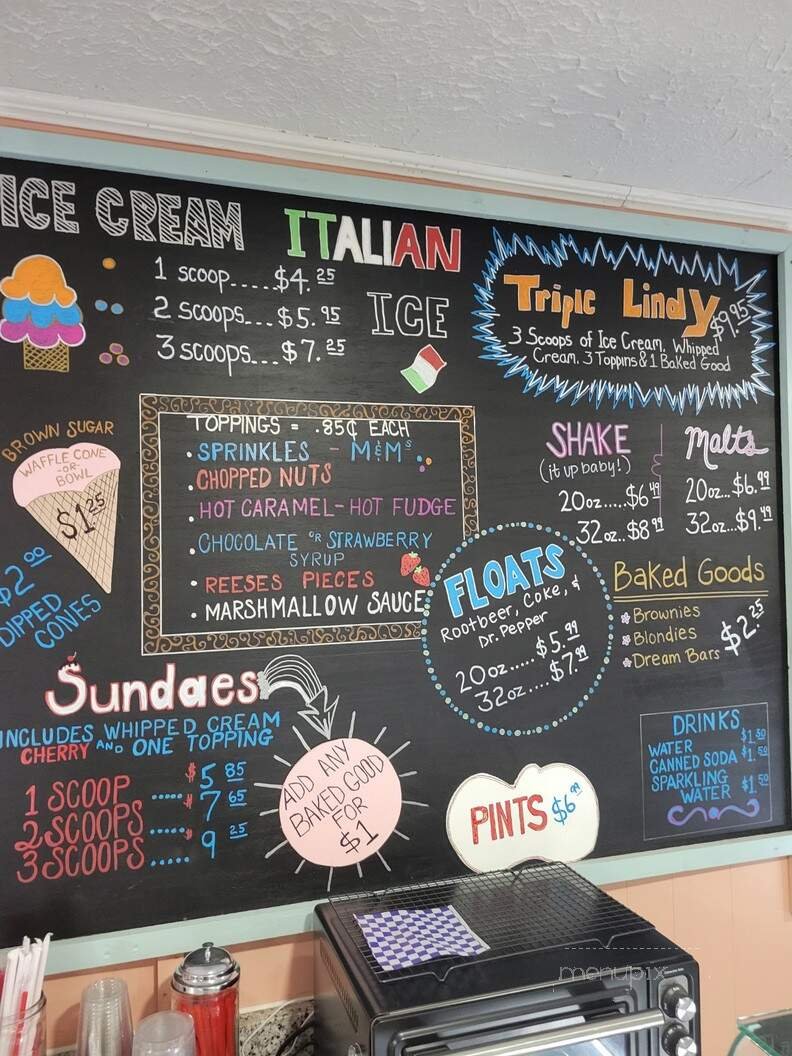 ICE CREAM
ITALIAN
ICE
1 scoop.....$4.25
2 scoops...$5.95
3 scoops...$7.25
Triple Lindy $9.95
3 Scoops of Ice Cream, Whipped
Cream, 3 Toppins & 1 Baked Good
BROWN SUGAR
WAFFLE CONE
-OR-
BOWL
$1.25
$2.00
DIPPED
CONES
TOPPINGS = .85¢ EACH
• SPRINKLES - M&M's
• CHOPPED NUTS
• HOT CARAMEL-HOT FUDGE
• CHOCOLATE OR STRAWBERRY
SYRUP
• REESES PIECES
• MARSHMALLOW SAUCE
SHAKE
(it up baby!)
20oz.....$6.49
32oz..$8.99
Malts
20oz...$6.99
32oz...$9.49
FLOATS
Rootbeer, Coke, &
Dr. Pepper
20oz.....$5.99
32oz....$7.99
Baked Goods
Brownies
Blondies
Dream Bars
$2.25
Sundaes
INCLUDES WHIPPED CREAM
CHERRY AND ONE TOPPING
1 SCOOP ..... $5.85
2 SCOOPS ..... $7.65
3 SCOOPS ..... 9.25
ADD ANY
BAKED GOOD
FOR
$1
PINTS $6.99
DRINKS
WATER $1.50
CANNED SODA $1.50
SPARKLING
WATER $1.50
menupix